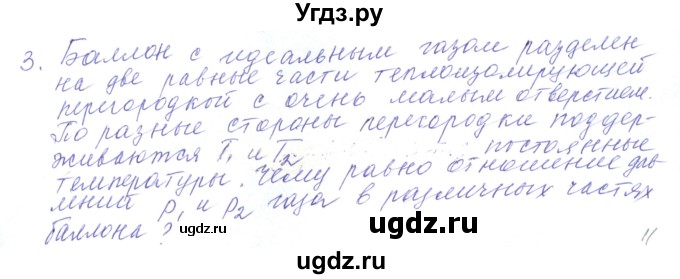 Угдз.ру
3. Баллон с идеальным газом разделен
на две равные части теплоизолирующей
перегородкой с очень малым отверстием.
По разные стороны перегородки поддер-
живаются T₁ и T₂ постоянные
температуры. Чему равно отношение дав-
лений p₁ и p₂ газа в различных частях
баллона?
11
ugdz.ru ugdz.ru ugdz.ru